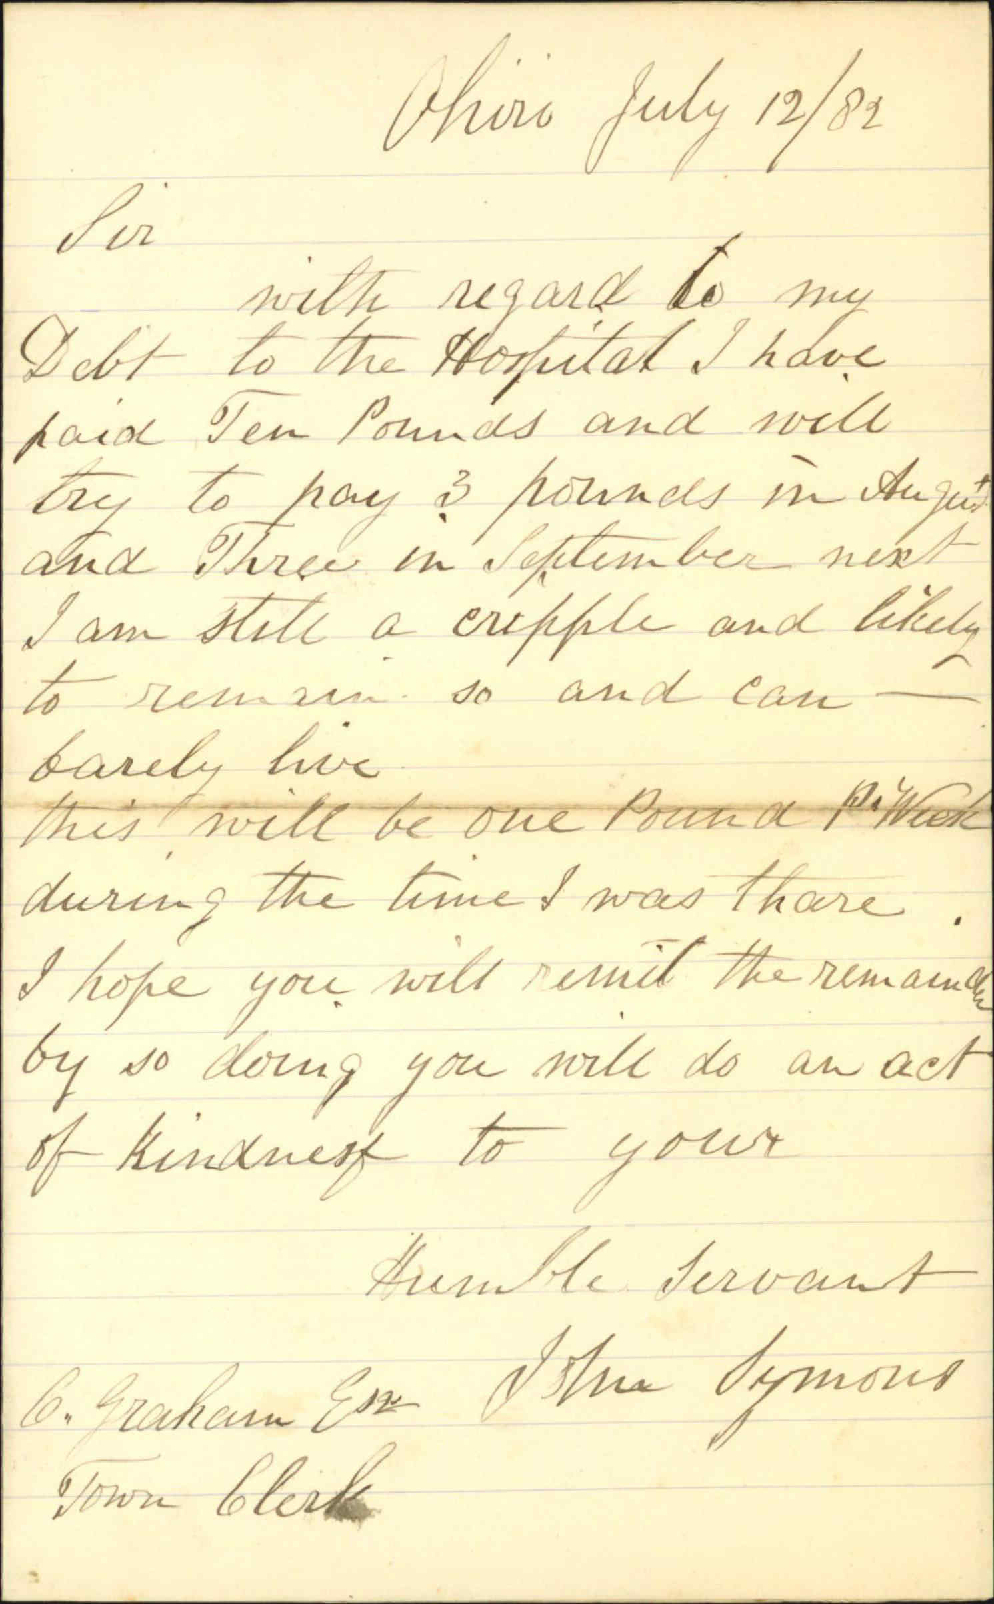 Ohiro July 12/82
Sir
with regard to my
Debt to the Hospital I have
paid Ten Pounds and will
try to pay 3 pounds in August
and Three in September next
I am still a cripple and likely
to remain so and can —
barely live
this will be one Pound Pr Week
during the time I was thare.
I hope you will remit the remainder
by so doing you will do an act
of Kindness to your
Humble Servant
John Symons
C. Graham Esqr
Town Clerk